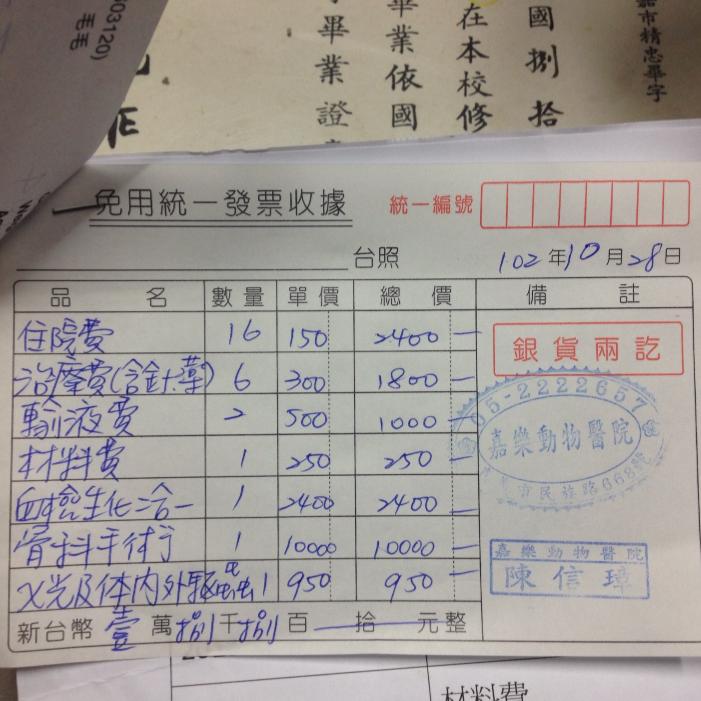 603120)
毛毛
國捌拾
在本校修
畢業依國
畢業證
嘉市精忠畢字
免用統一發票收據
統一編號
台照
102年10月28日
品名 數量 單價 總價 備註
住院費 16 150 2400
治療費(含針.藥) 6 300 1800
輸液費 2 500 1000
材料費 1 250 250
血檢生化三合一 1 2400 2400
骨科手術 1 10000 10000
X光及体内外驅虫 1 950 950
新台幣壹萬捌千捌百拾元整
銀貨兩訖
05-2222657
嘉樂動物醫院
市民族路668號
嘉樂動物醫院
陳信璋
材料費